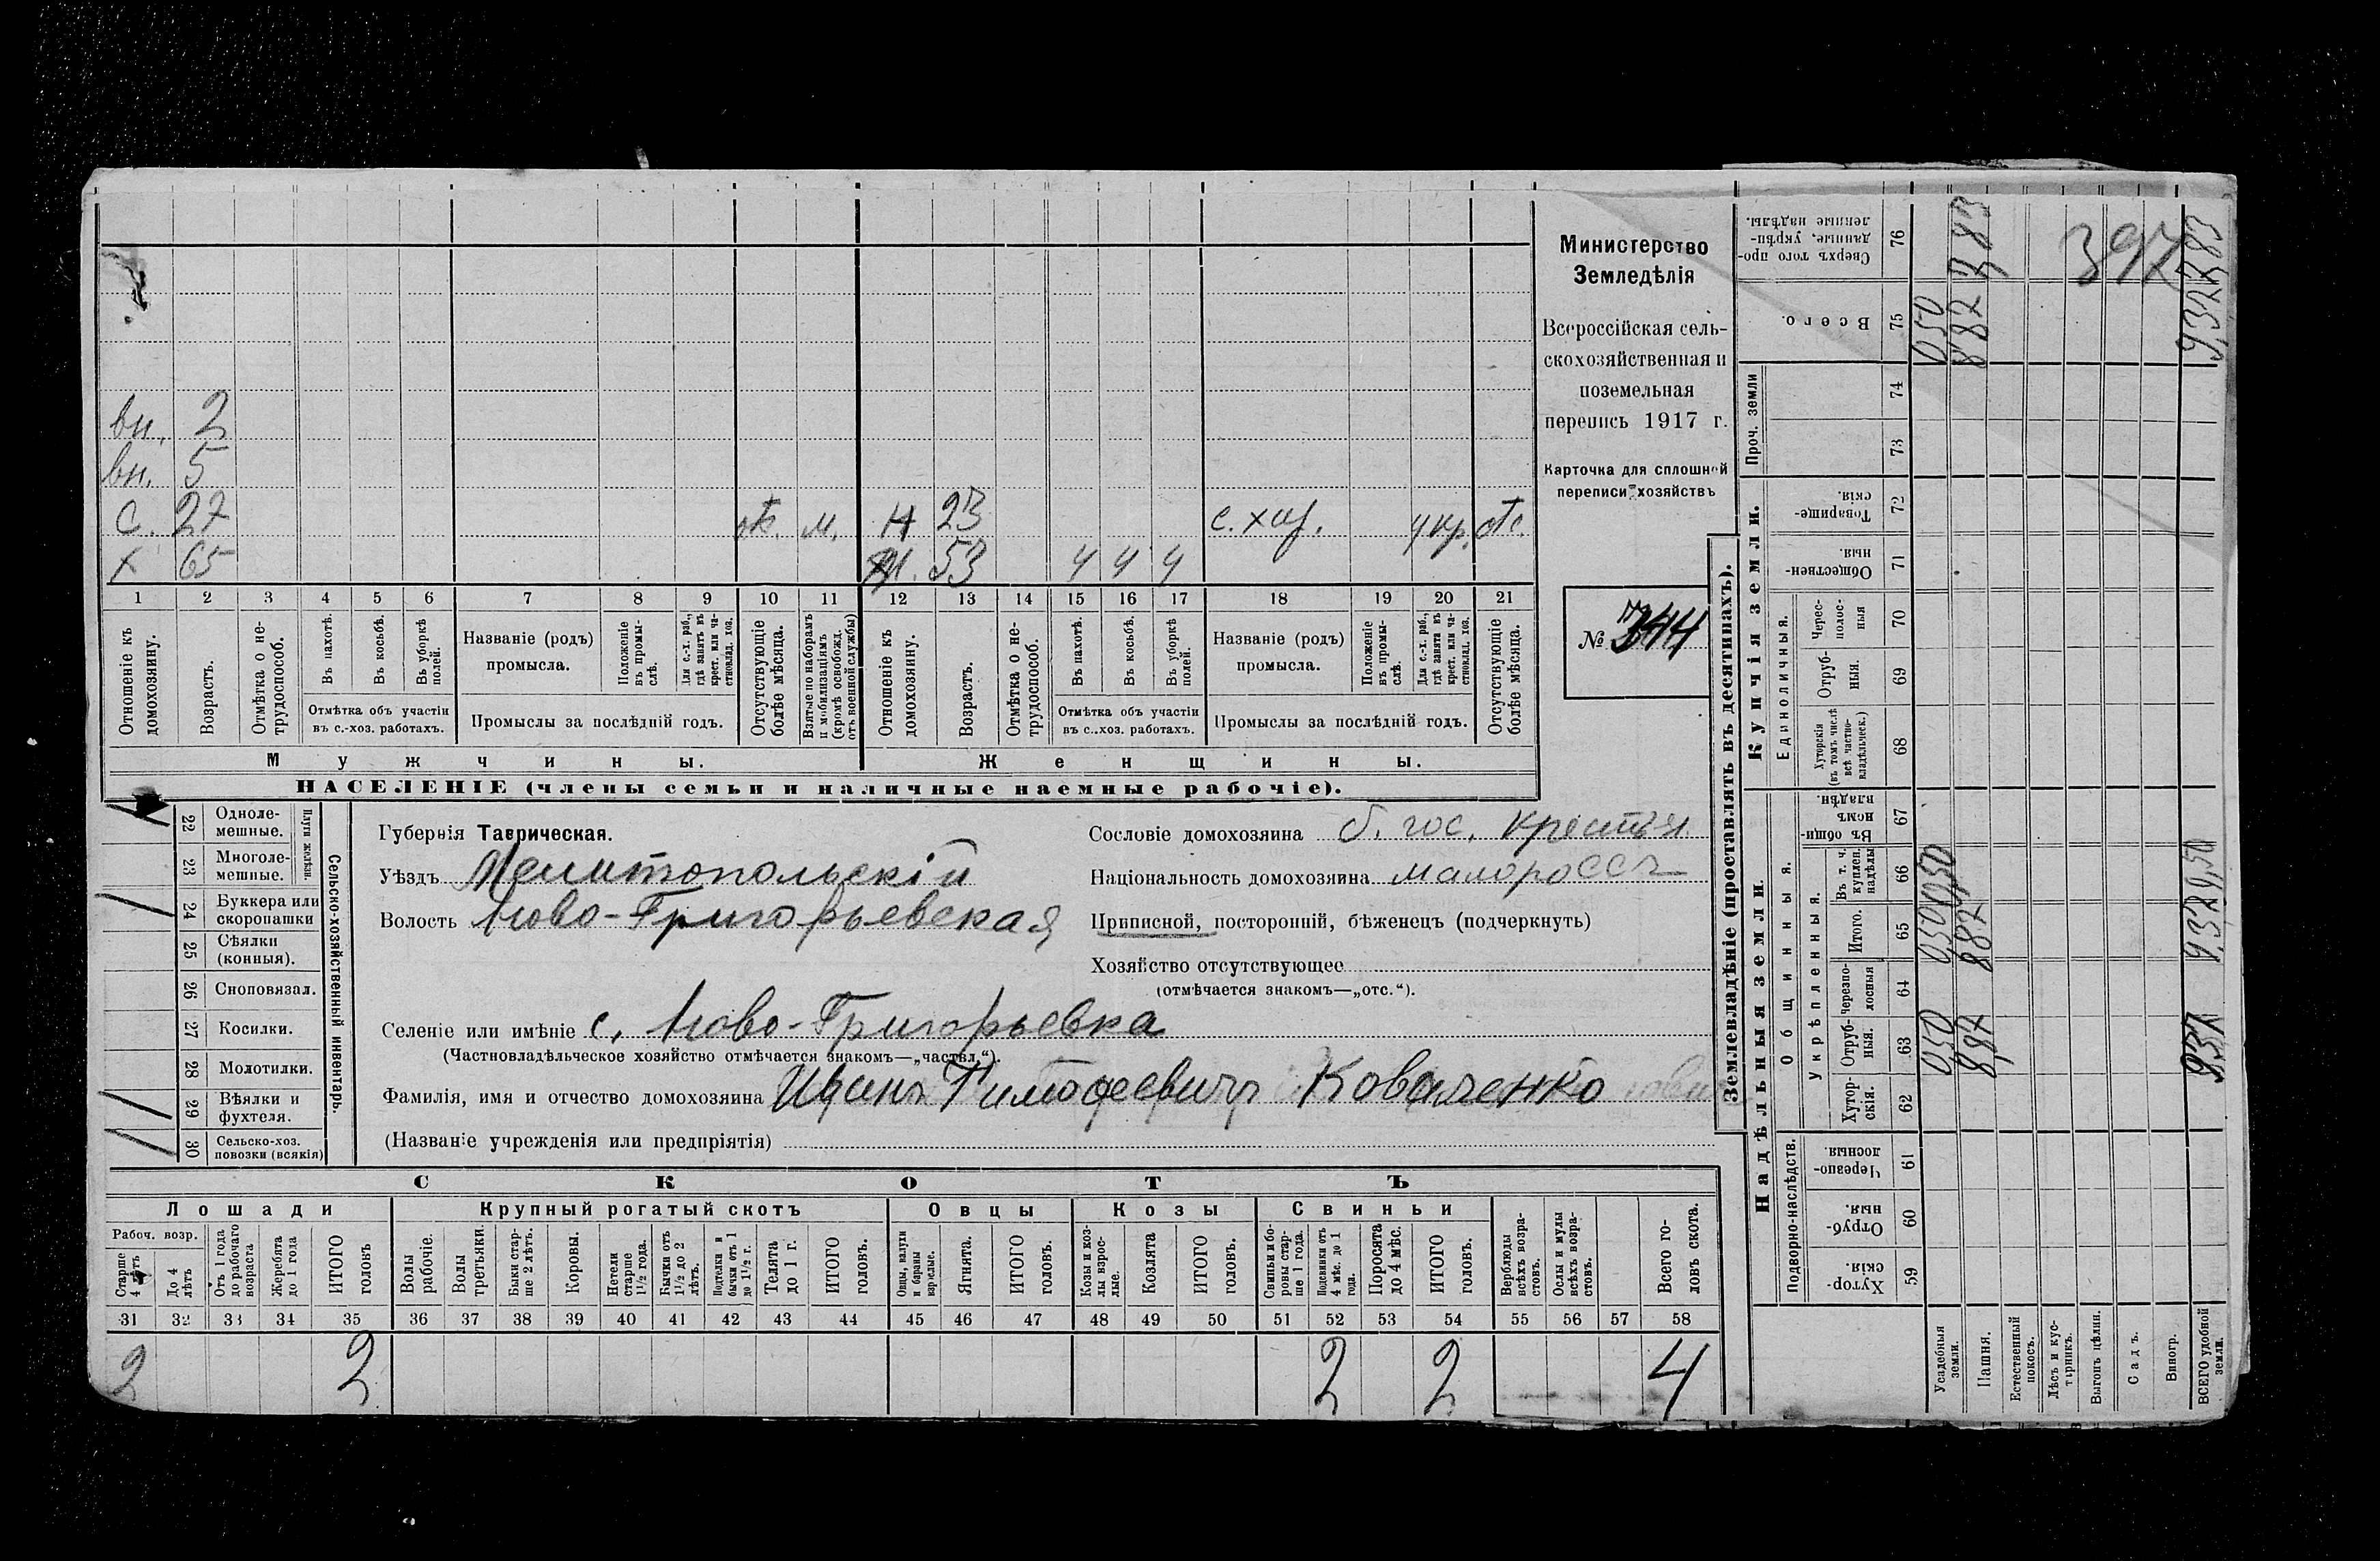 вн. 2
вн. 5
С. 27 отс. м. Н 23 с. хоз. у кр. отс.
х 65 М. 53 ч ч ч
1 2 3 4 5 6 7 8 9 10 11 12 13 14 15 16 17 18 19 20 21
Отношеніе къ домохозяину.
Возрастъ.
Отмѣтка о нетрудоспособ.
Въ пахотѣ.
Въ косьбѣ.
Въ уборкѣ полей.
Отмѣтка объ участіи
въ с.-хоз. работахъ.
Названіе (родъ)
промысла.
Положеніе въ промыслѣ.
Для с.-х. раб., гдѣ занятъ въ крест. или частновлад. хоз.
Промыслы за послѣдній годъ.
Отсутствующіе болѣе мѣсяца.
Взятые по наборамъ и мобилизаціямъ (кромѣ освобожд. отъ военной службы)
Отношеніе къ домохозяину.
Возрастъ.
Отмѣтка о нетрудоспособ.
Въ пахотѣ.
Въ косьбѣ.
Въ уборкѣ полей.
Отмѣтка объ участіи
въ с.-хоз. работахъ.
Названіе (родъ)
промысла.
Положеніе въ промыслѣ.
Для с.-х. раб., гдѣ занята въ крест. или частновлад. хоз.
Промыслы за послѣдній годъ.
Отсутствующіе болѣе мѣсяца.
Мужчины. Женщины.
НАСЕЛЕНІЕ (члены семьи и наличные наемные рабочіе).
Министерство
Земледѣлія
Всероссійская сель-
скохозяйственная и
поземельная
перепись 1917 г.
Карточка для сплошной
переписи хозяйствъ
№
22 Одноле-
мешные.
23 Многоле-
мешные.
Плуги желѣзн.
24 Буккера или
скоропашки
25 Сѣялки
(конныя).
26 Сноповязал.
27 Косилки.
28 Молотилки.
29 Вѣялки и
фухтеля.
30 Сельско-хоз.
повозки (всякія)
Сельско-хозяйственный инвентарь.
Губернія Таврическая.
Уѣздъ Мелитопольскій
Волость Ново-Григорьевская
Сословіе домохозяина б. гос. крестьян
Національность домохозяина малороссъ
Приписной, посторонній, бѣженецъ (подчеркнуть)
Хозяйство отсутствующее
(отмѣчается знакомъ—„отс.“).
Селеніе или имѣніе с. Ново-Григорьевка
(Частновладѣльческое хозяйство отмѣчается знакомъ—„частвл.“).
Фамилія, имя и отчество домохозяина Иванъ Тимофеевичъ Коваленко
(Названіе учрежденія или предпріятія)
СКОТЪ
Лошади Крупный рогатый скотъ Овцы Козы Свиньи
Рабоч. возр.
Старше 4 лѣтъ
До 4 лѣтъ
Отъ 1 года до рабочаго возраста
Жеребята до 1 года
ИТОГО головъ
Волы рабочіе.
Волы третьяки.
Быки старше 2 лѣтъ.
Коровы.
Нетели старше 1½ года.
Бычки отъ 1½ до 2 лѣтъ.
Подтелки и бычки отъ 1 до 1½ г.
Телята до 1 г.
ИТОГО головъ.
Овцы, валухи и бараны взрослые.
Ягнята.
ИТОГО головъ.
Козы и козлы взрослые.
Козлята
ИТОГО головъ.
Свиньи и боровы старше 1 года.
Подсвинки отъ 4 мѣс. до 1 года.
Поросята до 4 мѣс.
ИТОГО головъ.
Верблюды всѣхъ возрастовъ.
Ослы и мулы всѣхъ возрастовъ.
Всего головъ скота.
31 32 33 34 35 36 37 38 39 40 41 42 43 44 45 46 47 48 49 50 51 52 53 54 55 56 57 58
2 2 2 2 4
Землевладѣніе (проставлять въ десятинахъ).
Надѣльныя земли. Купчія земли.
Подворно-наслѣдств.
Общинныя.
Укрѣпленныя.
Единоличныя.
Проч. земли
Сверхъ того проданные, укрѣпленные надѣлы. 76
Всего. 75
74
73
Товарищескія. 72
Общественныя. 71
Черес-
полос-
ныя 70
Отруб-
ныя. 69
Хуторскія (въ томъ числѣ всѣ частновладѣльческ.) 68
Въ общинномъ владѣн. 67
Въ т. ч. куплен. надѣлы 66
Итого. 65
Черезполосныя 64
Отруб-
ныя. 63
Хутор-
скія. 62
Черезполосныя. 61
Отруб-
ныя. 60
Хутор-
скія. 59
Усадебныя земли.
Пашня.
Естественный покосъ.
Лѣсъ и кустарникъ.
Выгонъ цѣлин.
Садъ.
Виногр.
ВСЕГО удобной земли.
050
882
783
397
932
783
050
887
050
887
937